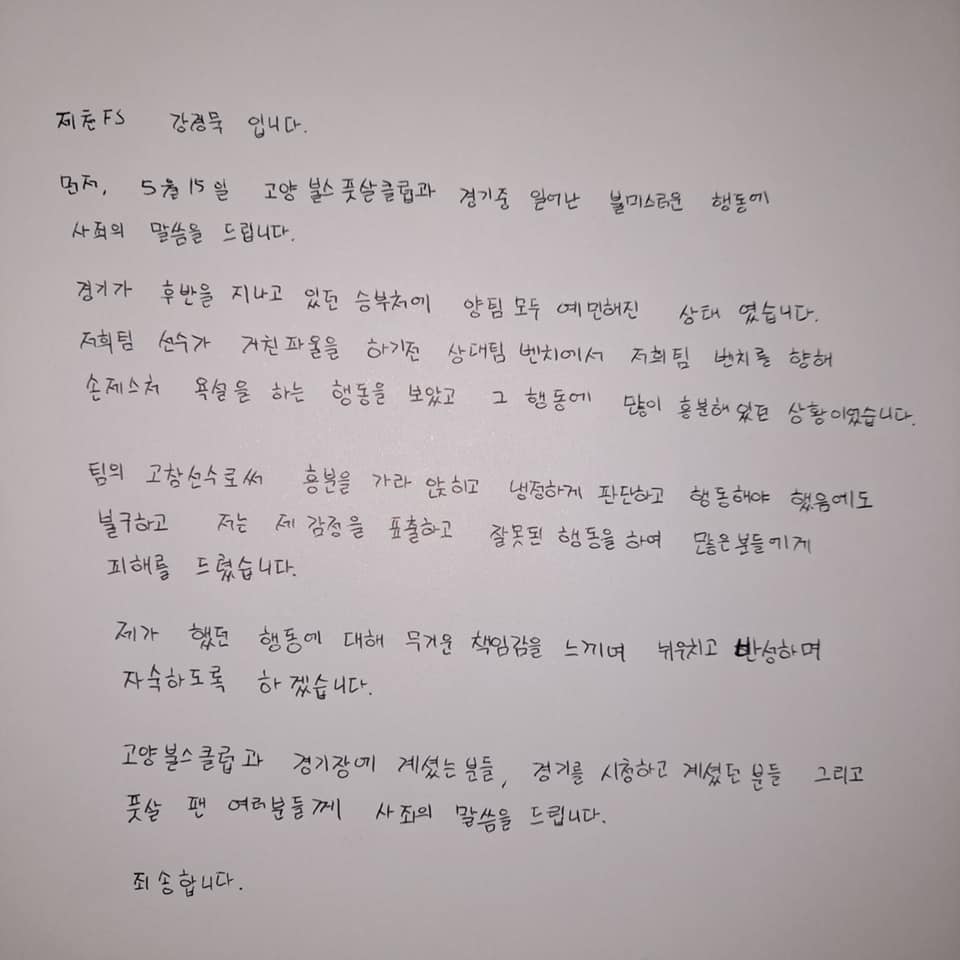 제천FS 강경묵 입니다.
먼저, 5월 15일 고양 불스 풋살클럽과 경기중 일어난 불미스러운 행동에
사죄의 말씀을 드립니다.
경기가 후반을 지나고 있던 승부처에 양팀 모두 예민해진 상태 였습니다.
저희팀 선수가 거친파울을 하기전 상대팀 벤치에서 저희팀 벤치를 향해
손제스처 욕설을 하는 행동을 보았고 그 행동에 많이 흥분해있던 상황이였습니다.
팀의 고참선수로써 흥분을 가라 앉히고 냉정하게 판단하고 행동해야 했음에도
불구하고 저는 제 감정을 표출하고 잘못된 행동을 하여 많은분들에게
피해를 드렸습니다.
제가 했던 행동에 대해 무거운 책임감을 느끼며 뉘우치고 반성하며
자숙하도록 하겠습니다.
고양불스클럽과 경기장에 계셨는분들, 경기를 시청하고 계셨던 분들 그리고
풋살 팬 여러분들께 사죄의 말씀을 드립니다.
죄송합니다.